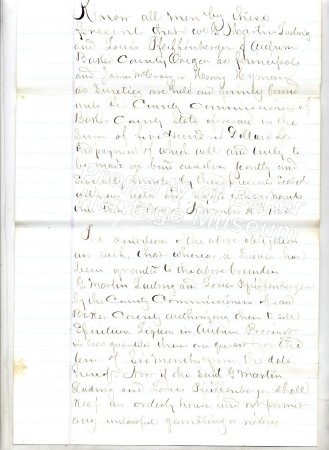 Know all men by these
present that we G Martin Ludwig
and Louis Pfeiffenberger of Auburn
Baker County Oregon as principals
and James McCrary & Henry Hyman
as Sureties are held and firmly bound
unto the County Commissioners of
Baker County State aforesaid in the
Sum of five Hundred Dollars for
the payment of which well and truly to
be made we bind ourselves jointly and
Severally firmly by these presents Sealed
with our seals and dated
this
The condition of the above obligation
are such, that whereas a license has
been granted to the above bounden
G. Martin Ludwig and Louis Pfeiffenberger
by the County Commissioners of said
Baker County authorizing them to sell
Spiritous Liquor in Auburn Precinct
in less quantities than one quart for the
term of Six months from the date
hereof. Now if the said G Martin
Ludwig and Louis Pfeiffenberger shall
keep an orderly house and not permit
any unlawful gambling or riotous
Heritage Museum